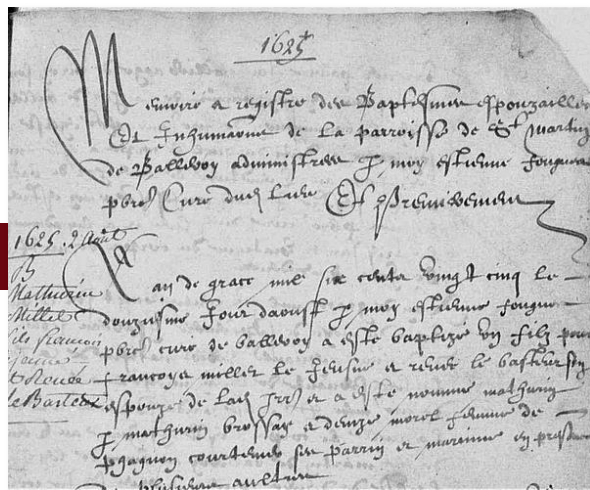 1625
Memoire et registre des Baptesmes espouzailles
Et Inhumations de la parroisse de St Martin
de Ballevoy administres p. moy estienne
pbre Curé dud. lieu Et premierement
1625. 2 Août
B
Mathurin
Millet
fils françois
jeune
& Renée
le Basteux
Lan de grace mil six cents vingt cinq le
douziesme Jour daoust p. moy estienne
pbre curé de ballevoy a esté baptizé un filz pour
francoys millet le Jeusne et renee le basteur son
espouze de lad. prse et a esté nommé mathurin
p. mathurin brossay et denyze morel femme de
courtens ses parrin et marinne en presence
de plusieurs aultres